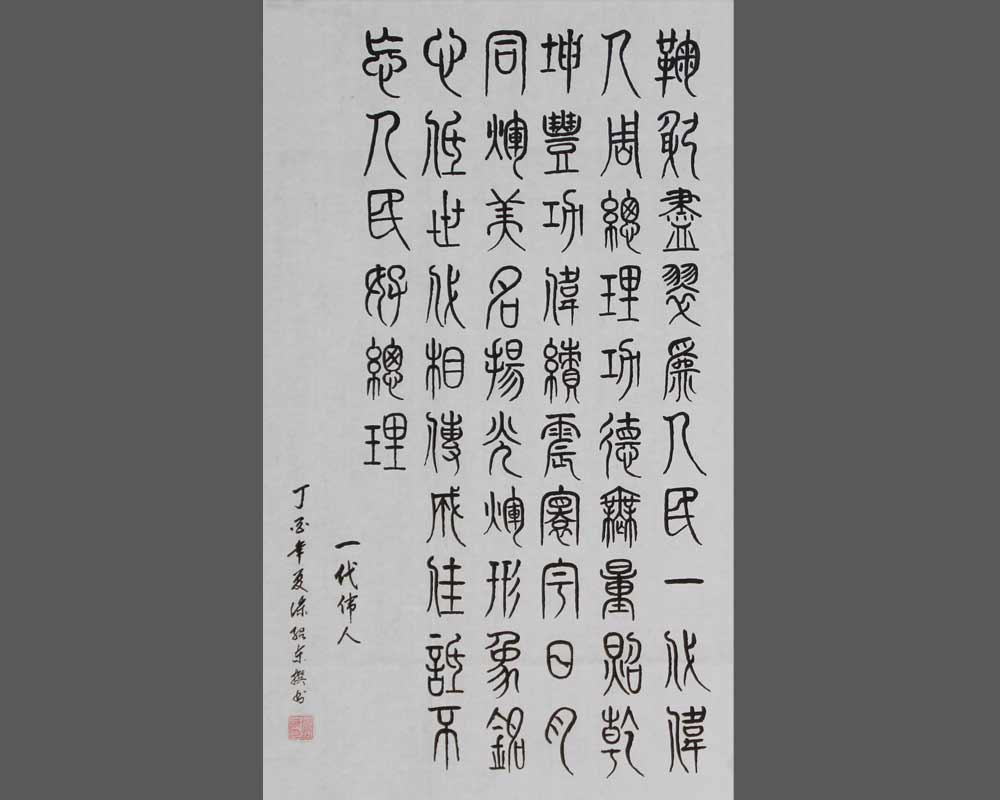 鞠躬盡翠為人民一代偉
人周總理功德無量照乾
坤豐功偉績震寰宇日月
同輝美名揚光輝形象銘
心低世代相傳成佳話不
忘人民好總理
一代伟人
丁酉年夏绍东撰书